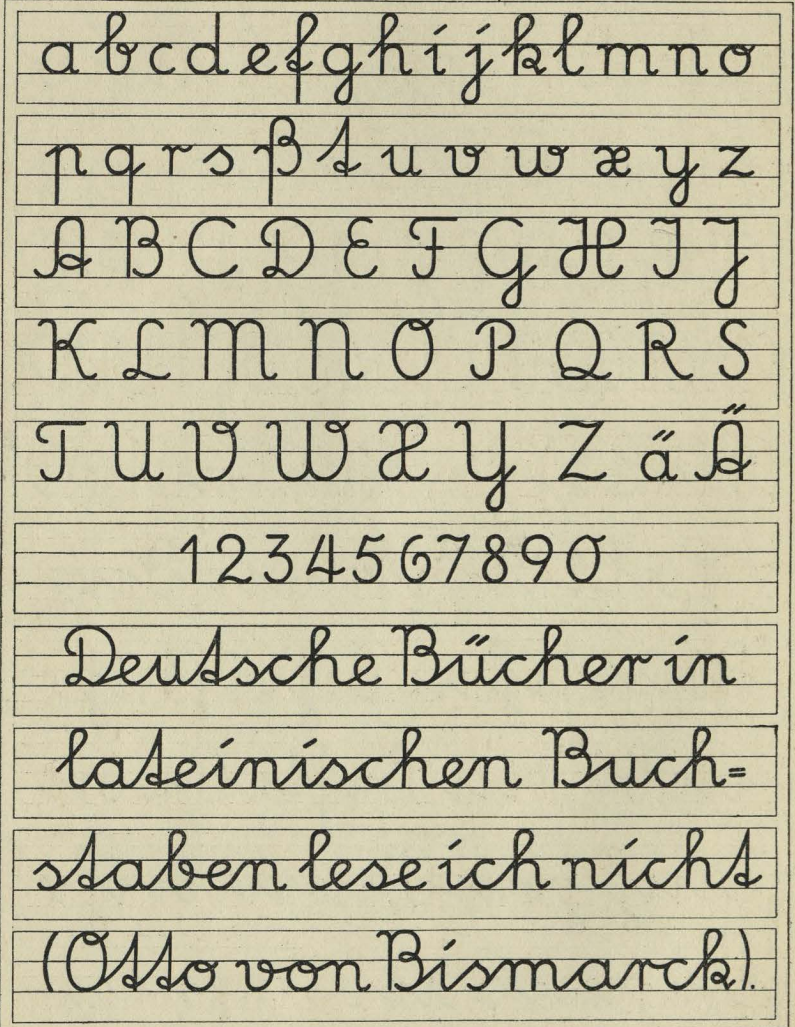 a b c d e f g h i j k l m n o
p q r s ß t u v w x y z
A B C D E F G H I J
K L M N O P Q R S
T U V W X Y Z ä Ä
1 2 3 4 5 6 7 8 9 0
Deutsche Bücher in
lateinischen Buch=
staben lese ich nicht
(Otto von Bismarck).